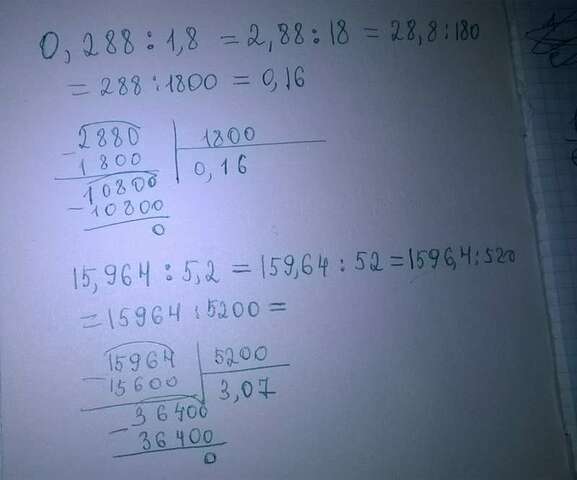 0,288 : 1,8 = 2,88 : 18 = 28,8 : 180
= 288 : 1800 = 0,16
2880 1800
- 1800 0,16
10800
- 10800
0
15,964 : 5,2 = 159,64 : 52 = 1596,4 : 520
= 15964 : 5200 =
15964 5200
- 15600 3,07
36400
- 36400
0